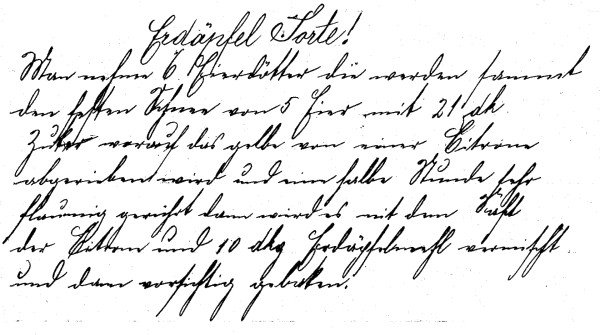 Erdäpfel Torte!
Man nehme 6 Eierdötter die werden sammt
den festen Schnee von 5 Eier mit 21 dk
Zuker worauf das gelbe von einer Citrone
abgerieben wird und eine halbe Stunde sehr
flaumig gerührt dann wird es mit dem Saft
der Citron und 10 dkg Erdäpfelmehl vermischt
und dann vorsichtig gebaken.